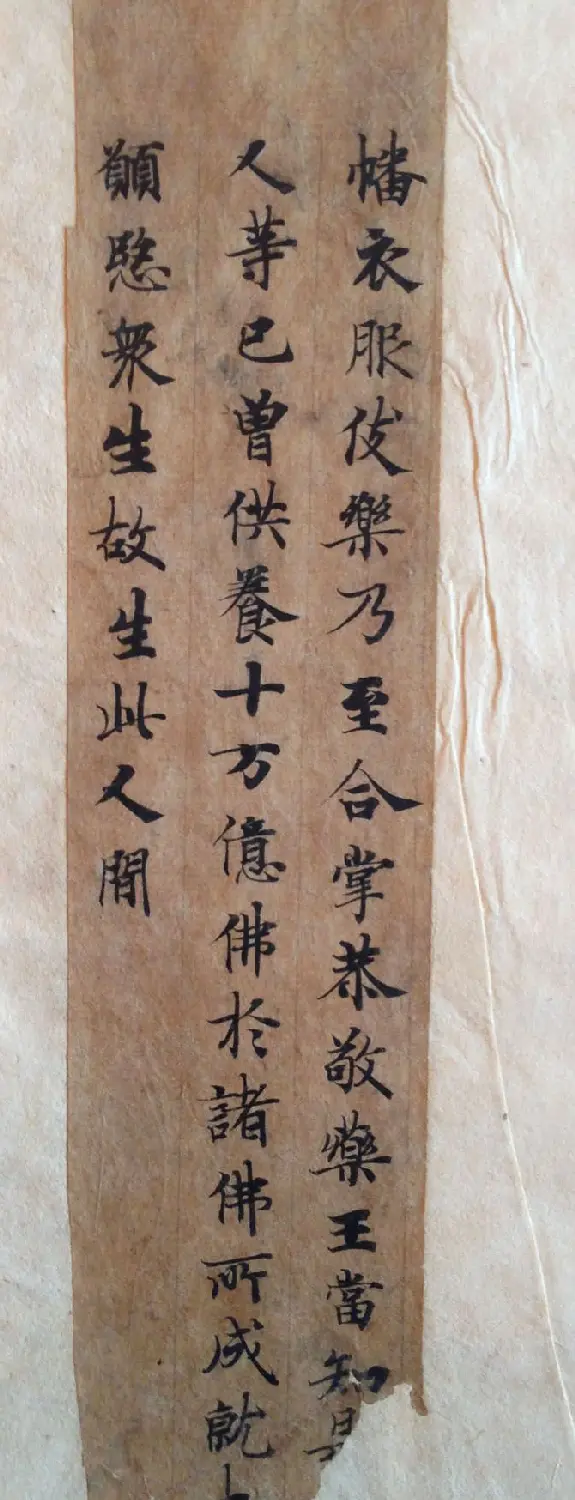 幡衣服伎樂乃至合掌恭敬藥王當知是
人等已曾供養十万億佛於諸佛所成就
願愍衆生故生此人間